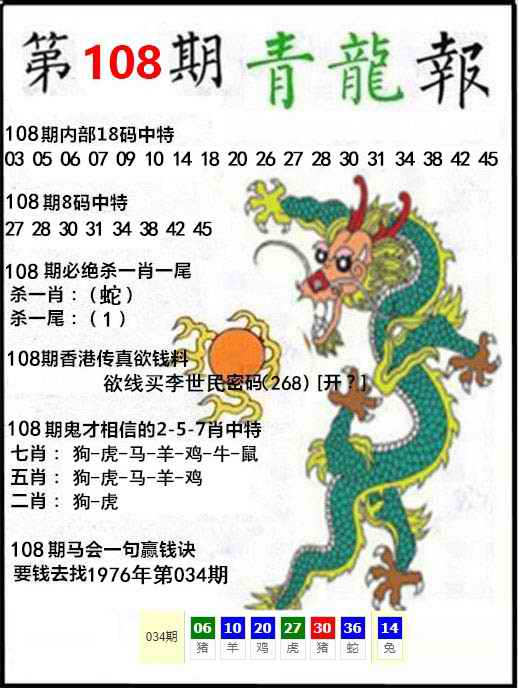 第108期青龍報
108期内部18码中特
03 05 06 07 09 10 14 18 20 26 27 28 30 31 34 38 42 45
108期8码中特
27 28 30 31 34 38 42 45
108期必绝杀一肖一尾
杀一肖：（蛇）
杀一尾：（1）
108期香港传真欲钱料
欲线买李世民密码(268) [开？]
108期鬼才相信的2-5-7肖中特
七肖：狗-虎-马-羊-鸡-牛-鼠
五肖：狗-虎-马-羊-鸡
二肖：狗-虎
108期马会一句赢钱诀
要钱去找1976年第034期
034期 06 10 20 27 30 36 14
猪 羊 鸡 虎 猪 蛇 兔